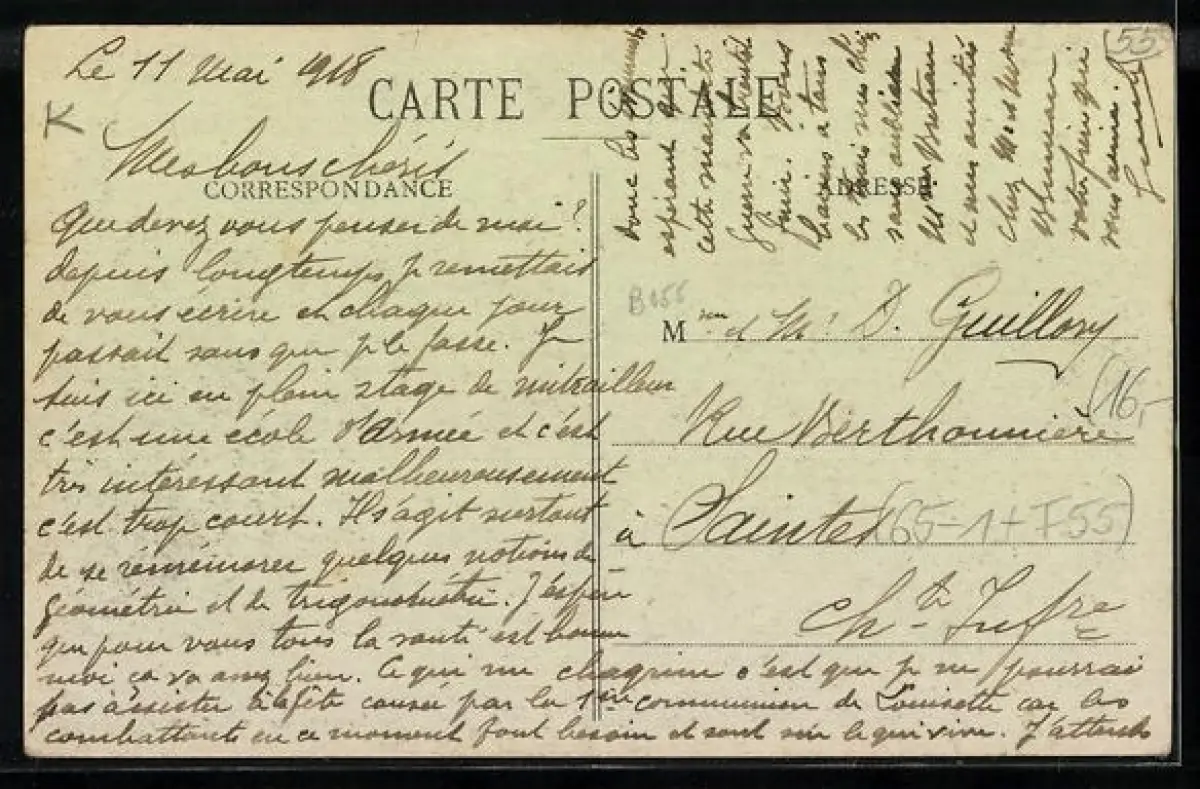 Le 11 Mai 1918
CARTE POSTALE
Mes bons chéris
CORRESPONDANCE
Que devez vous penser de moi ?
depuis longtemps, je remettais
de vous écrire et chaque jour
passait sans que je le fasse. Je
suis ici en plein stage de mitrailleur
c'est une école d'Armée et c'est
très intéressant malheureusement
c'est trop court. Il s'agit surtout
de se remémorer quelques notions de
géométrie et de trigonométrie. J'espère
que pour vous tous la santé est bonne
moi ça va assez bien. Ce qui me chagrine c'est que je ne pourrai
pas assister à la fête causée par la 1ère communion de Louisette car les
combattants en ce moment font besoin et sont sur le qui vive. J'attends
donc les
espérant que
cette maudite
guerre
finie. Bons
baisers à tous
les amis
sans oublier
et mes amitiés
chez Mr et Mme
votre qui
vous aime.
ADRESSE
55
K
B055
Mme et Mr D. Guillory
16,-
Rue Berthonnière
à Saintes
(65-1+F55)
Chte Infre